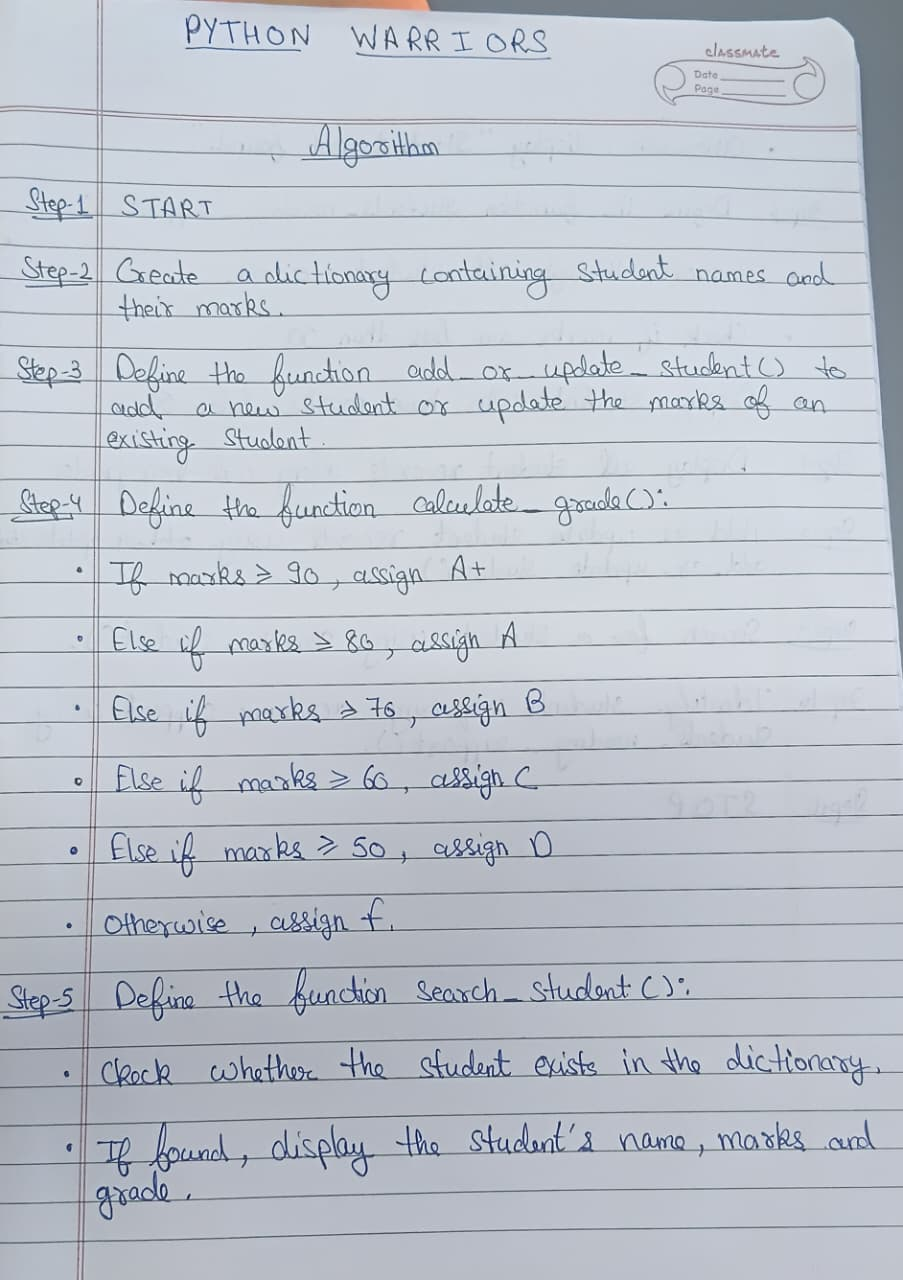 PYTHON WARRIORS
classmate
Date
Page
Algorithm
Step-1 START
Step-2 Create a dictionary containing student names and
their marks.
Step-3 Define the function add_or_update_student() to
add a new student or update the marks of an
existing student.
Step-4 Define the function calculate_grade():
• If marks ≥ 90, assign A+
• Else if marks ≥ 80, assign A
• Else if marks ≥ 70, assign B
• Else if marks ≥ 60, assign C
• Else if marks ≥ 50, assign D
• Otherwise, assign f.
Step-5 Define the function Search_student():
• Check whether the student exists in the dictionary.
• If found, display the student's name, marks and
grade.